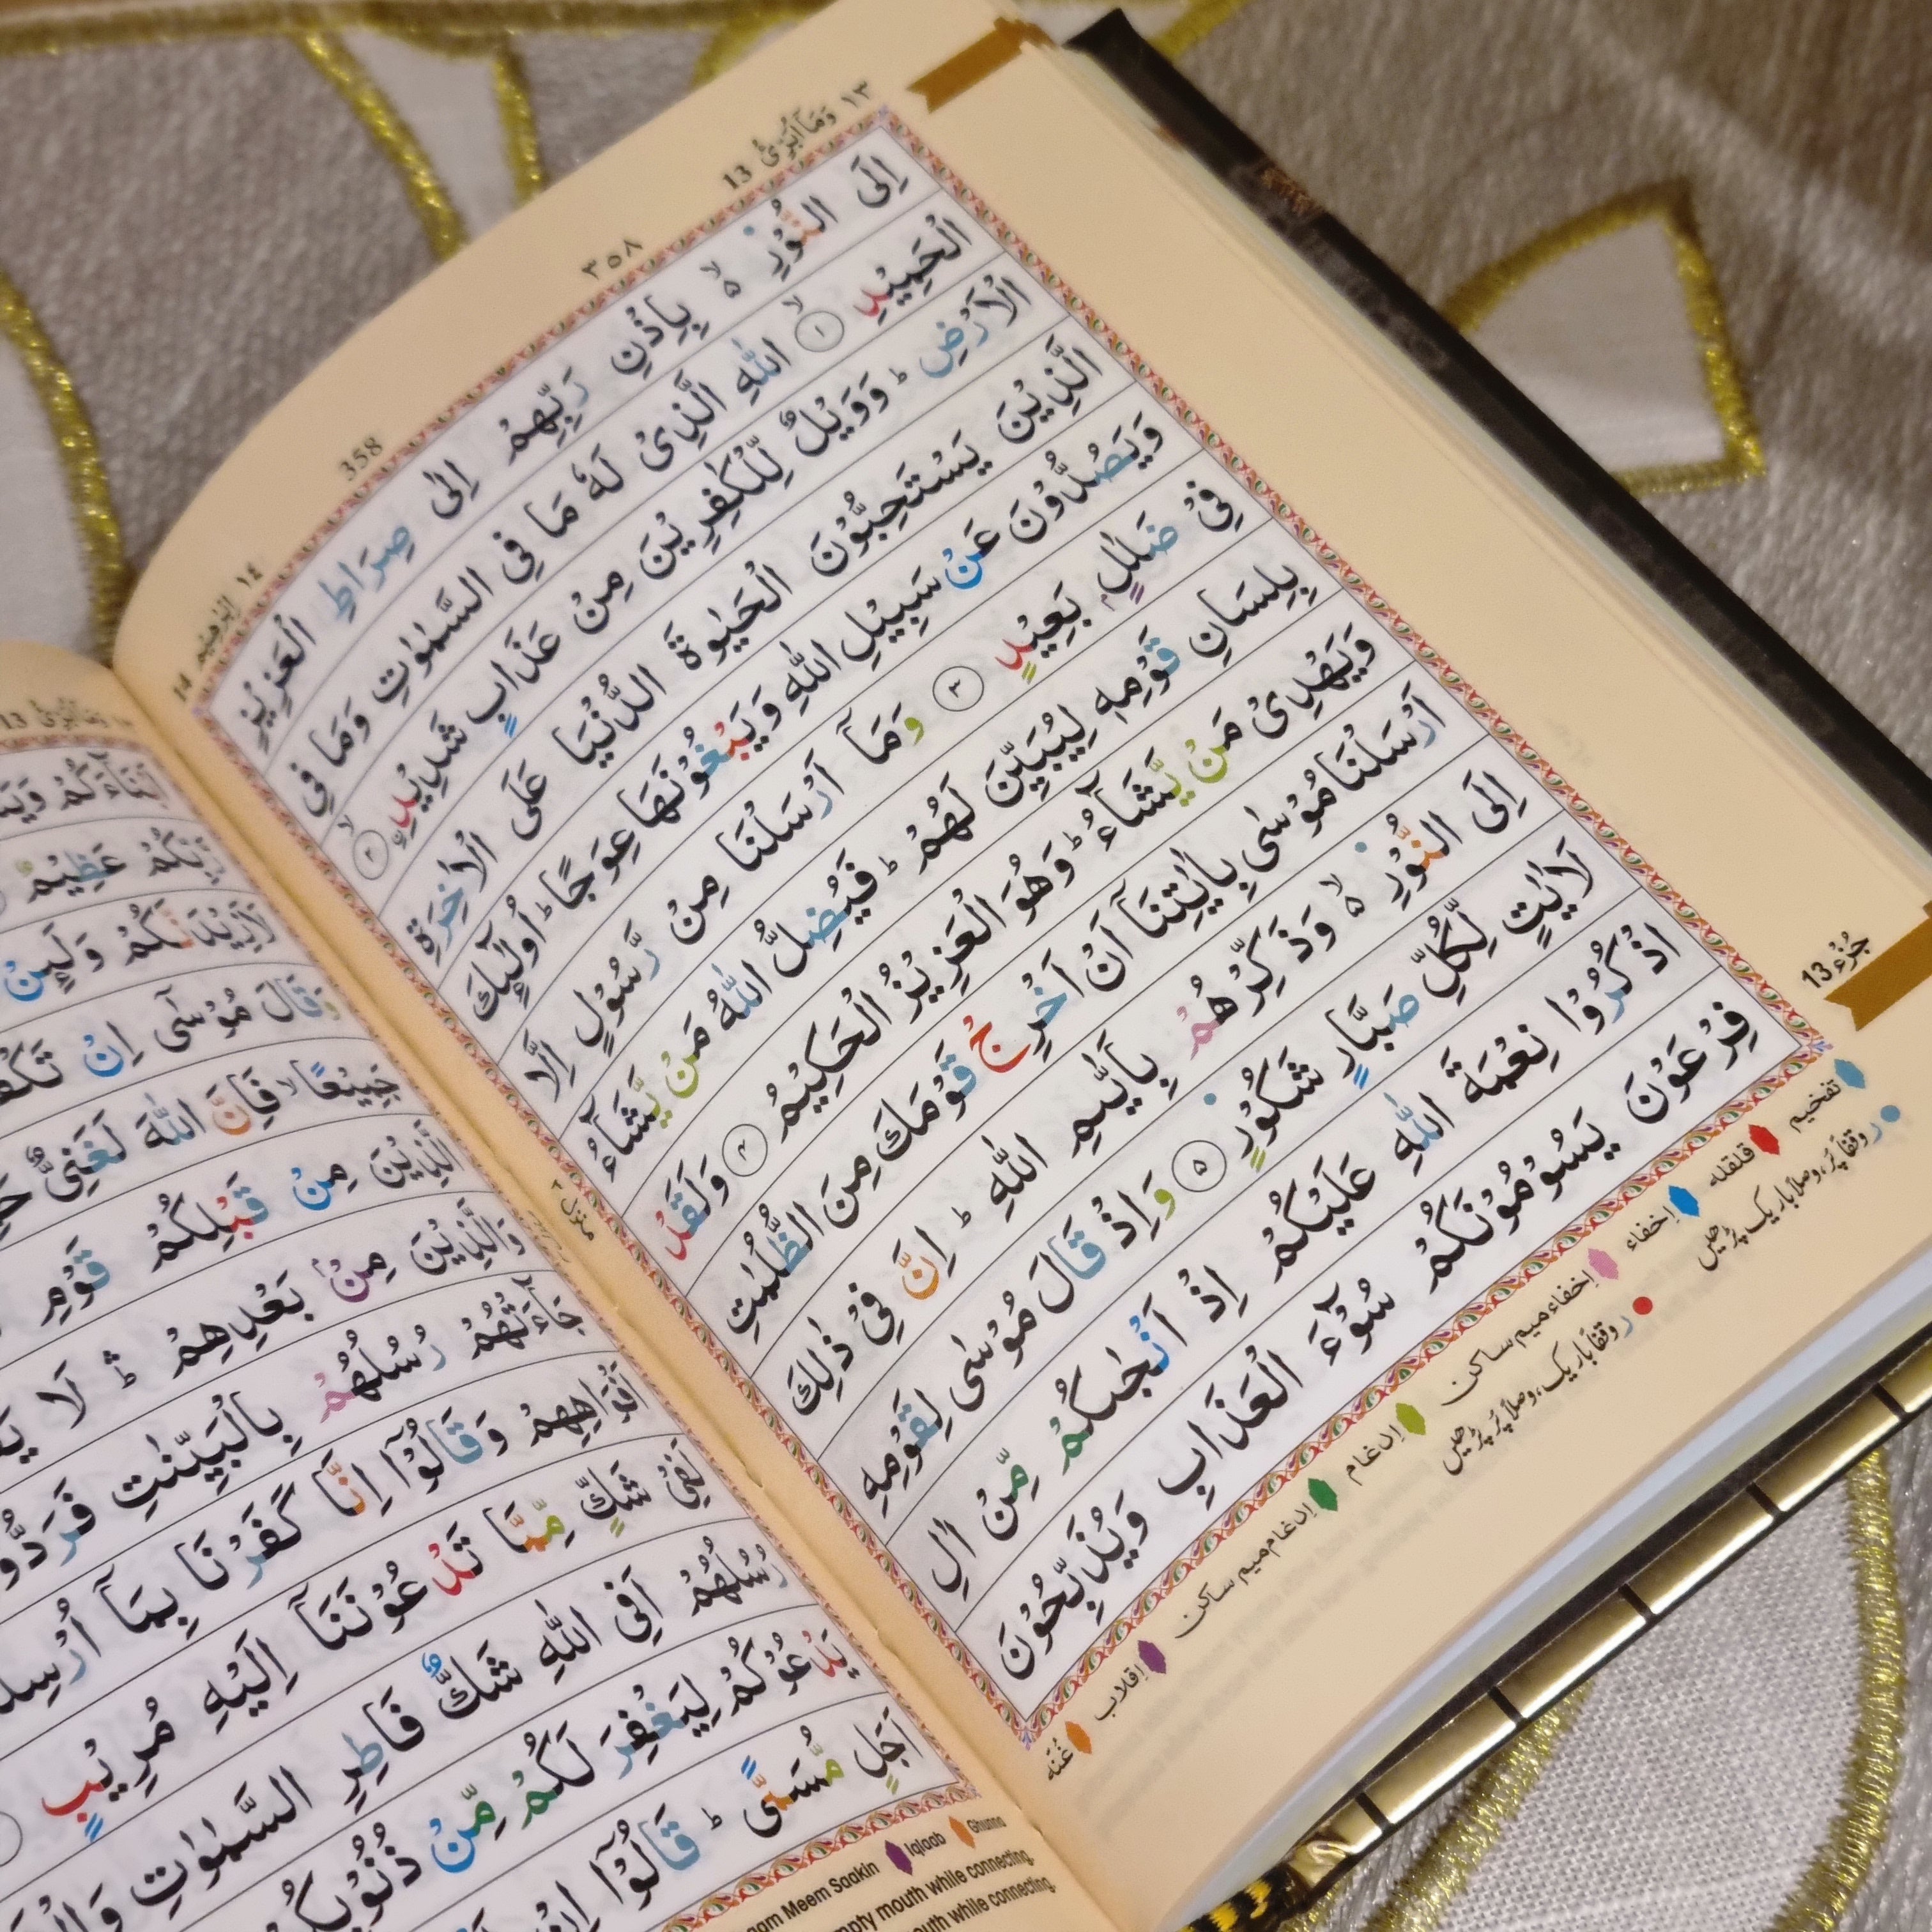 ١٣ وَمَآ اُبَرِّئُ 13
٣٥٨
358
١٤ اِبْرٰهِيْم 14
اِلَى النُّوْرِ ۙ۬ بِاِذْنِ رَبِّهِمْ اِلٰى صِرَاطِ الْعَزِيْزِ
الْحَمِيْدِ ۙ ١ اللّٰهِ الَّذِىْ لَهٗ مَا فِى السَّمٰوٰتِ وَمَا فِى
الْاَرْضِ ؕ وَوَيْلٌ لِّلْكٰفِرِيْنَ مِنْ عَذَابٍ شَدِيْدِۙ ٢
الَّذِيْنَ يَسْتَحِبُّوْنَ الْحَيٰوةَ الدُّنْيَا عَلَى الْاٰخِرَةِ
وَيَصُدُّوْنَ عَنْ سَبِيْلِ اللّٰهِ وَيَبْغُوْنَهَا عِوَجًا ؕ اُولٰٓئِكَ
فِىْ ضَلٰلٍۭ بَعِيْدٍ ٣ وَمَاۤ اَرْسَلْنَا مِنْ رَّسُوْلٍ اِلَّا
بِلِسَانِ قَوْمِهٖ لِيُبَيِّنَ لَهُمْ ؕ فَيُضِلُّ اللّٰهُ مَنْ يَّشَآءُ
وَيَهْدِىْ مَنْ يَّشَآءُ ؕ وَهُوَ الْعَزِيْزُ الْحَكِيْمُ ٤ وَلَقَدْ
اَرْسَلْنَا مُوْسٰى بِاٰيٰتِنَاۤ اَنْ اَخْرِجْ قَوْمَكَ مِنَ الظُّلُمٰتِ
اِلَى النُّوْرِ ۙ۬ وَذَكِّرْهُمْ بِاَيّٰىمِ اللّٰهِ ؕ اِنَّ فِىْ ذٰلِكَ
لَاٰيٰتٍ لِّكُلِّ صَبَّارٍ شَكُوْرٍ ٥ وَاِذْ قَالَ مُوْسٰى لِقَوْمِهِ
اذْكُرُوْا نِعْمَةَ اللّٰهِ عَلَيْكُمْ اِذْ اَنْجٰىكُمْ مِّنْ اٰلِ
فِرْعَوْنَ يَسُوْمُوْنَكُمْ سُوْٓءَ الْعَذَابِ وَيُذَبِّحُوْنَ
جُزْء 13
منزل ٣
تفخیم قلقله اِخفاء اِخفاء میم ساکن اِدغام اِدغام میم ساکن اِقلاب غُنّه
ر وقفاً پُر، وصلاً باریک پڑھیں ر وقفاً باریک، وصلاً پُر پڑھیں
13
عَظِيْمٌ
كُمْ وَلَئِنْ
وَقَالَ مُوْسٰٓى اِنْ
جَمِيْعًا ۙ فَاِنَّ اللّٰهَ لَغَنِىٌّ
الَّذِيْنَ مِنْ قَبْلِكُمْ قَوْمِ
وَالَّذِيْنَ مِنْۢ بَعْدِهِمْ ۛؕ لَا
جَآءَتْهُمْ رُسُلُهُمْ بِالْبَيِّنٰتِ فَرَدُّوْۤا
اَفْوَاهِهِمْ وَقَالُوْۤا اِنَّا كَفَرْنَا بِمَاۤ
لَفِىْ شَكٍّ مِّمَّا تَدْعُوْنَنَاۤ اِلَيْهِ مُرِيْبٍ
رُسُلُهُمْ اَفِى اللّٰهِ شَكٌّ فَاطِرِ السَّمٰوٰتِ
يَدْعُوْكُمْ لِيَغْفِرَ لَكُمْ مِّنْ
اَجَلٍ مُّسَمًّى ؕ قَالُوْۤا
Meem Saakin Iqlaab Ghunna
mouth while connecting.
while connecting.